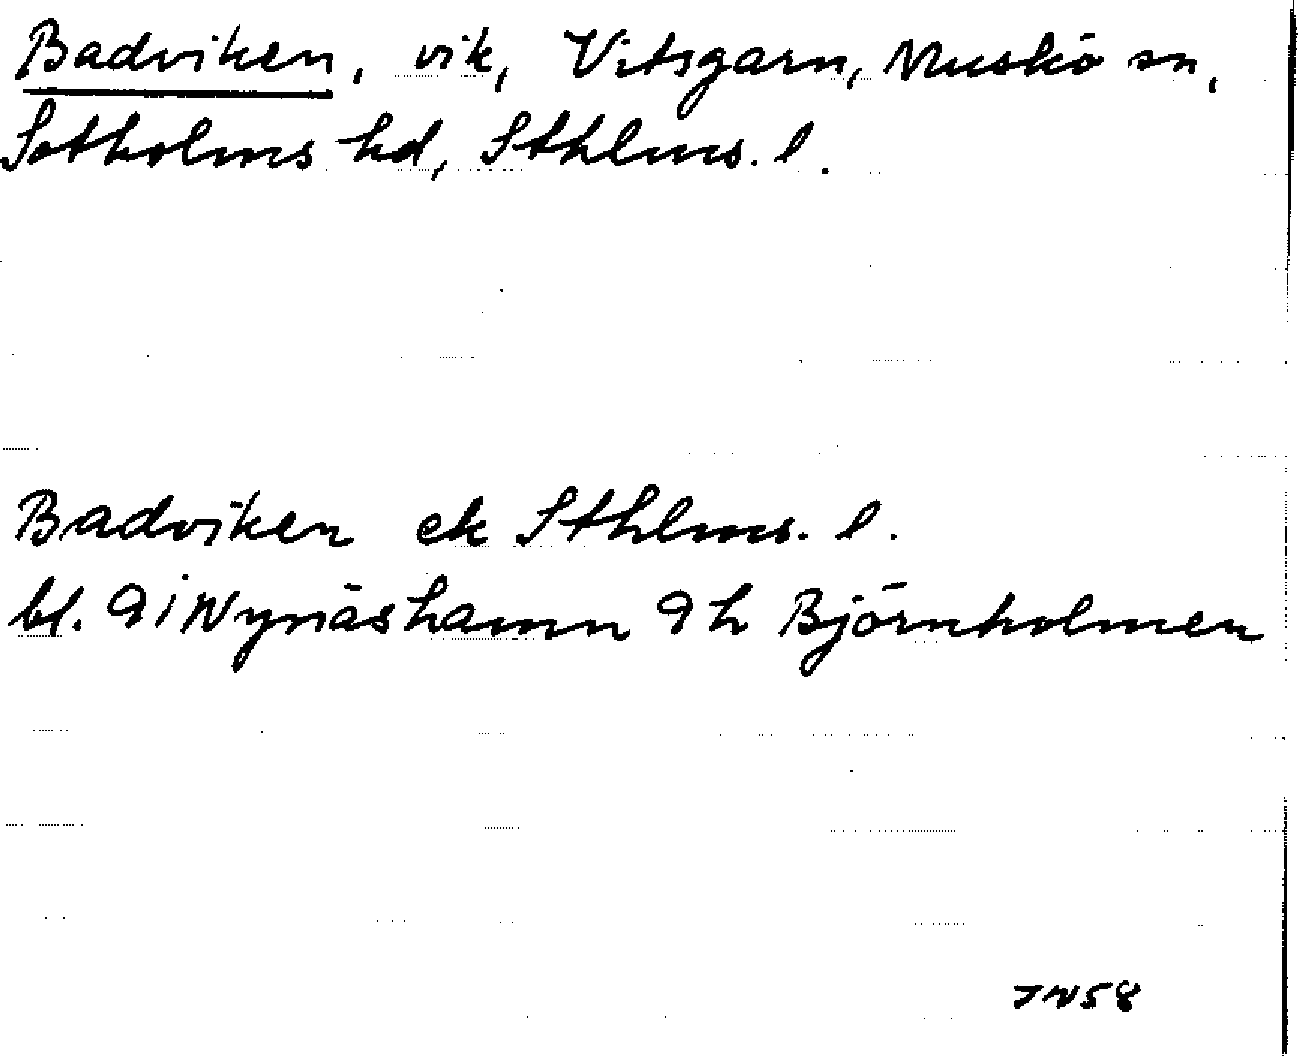 Badviken, vik, Vitsgarn, Muskö sn,
Sotholms hd, Sthlms. l.
Badviken ek Sthlms. l.
bl. 9i Nynäshamn 9h Björnholmen